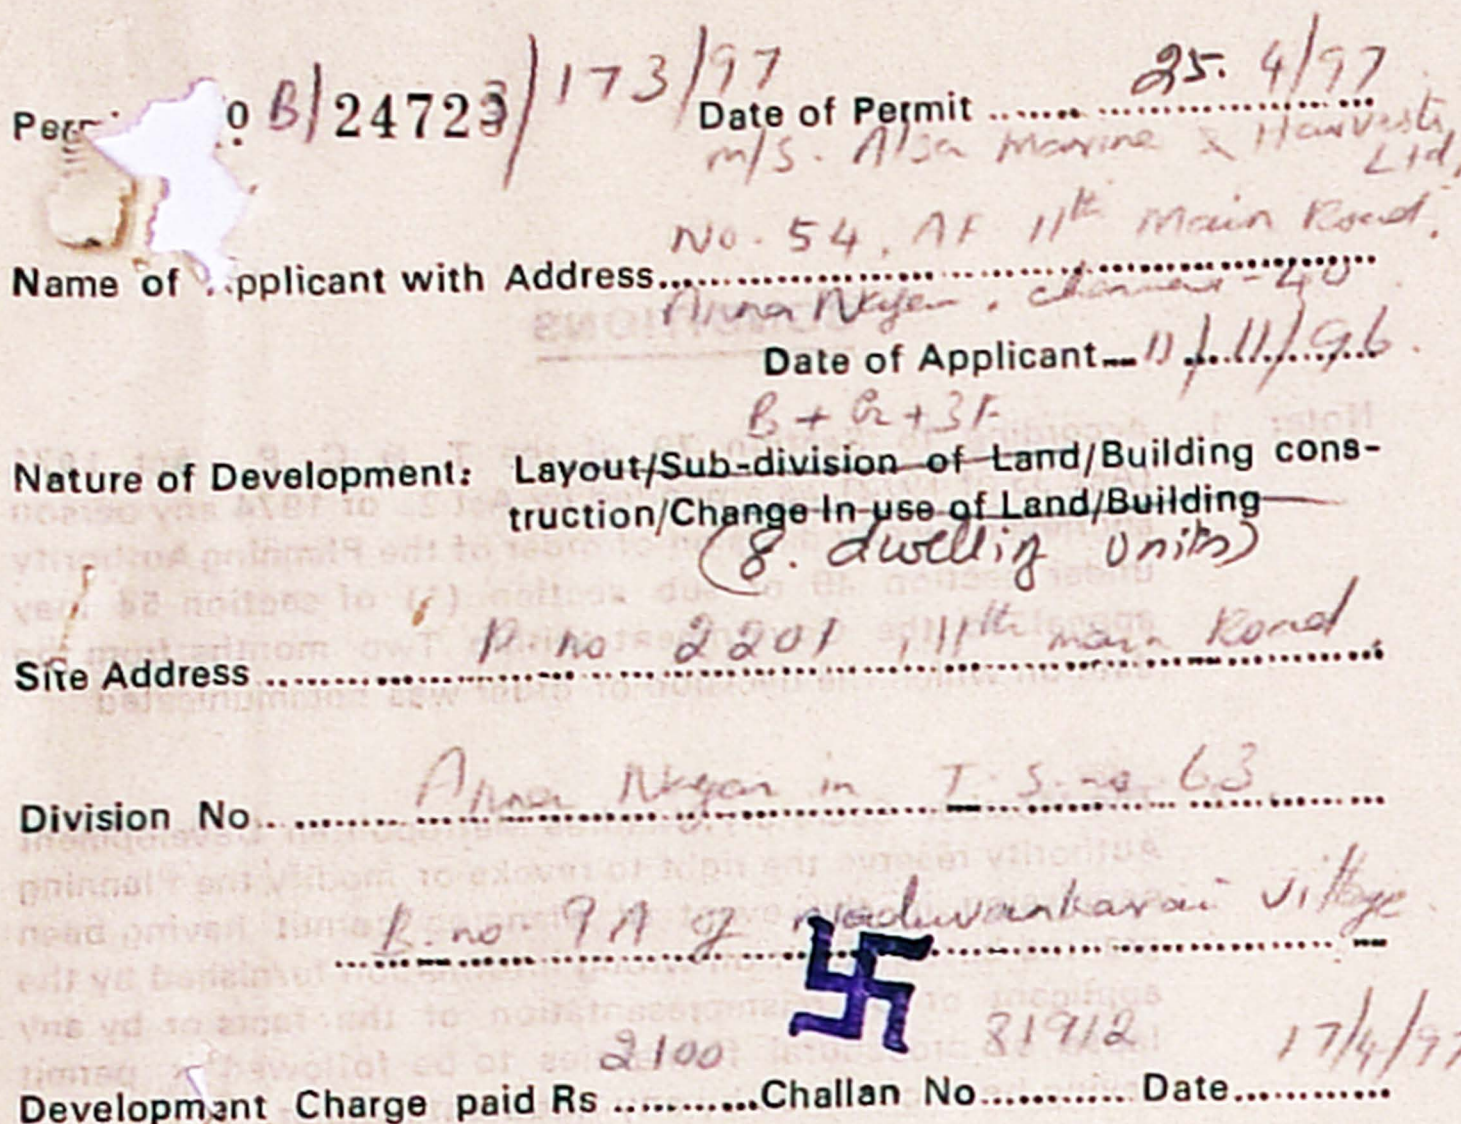 Per o B/24723/173/97 Date of Permit 25. 4/97
m/s. Alsa Marine & Harvests Ltd,
No. 54, AF 11th Main Road,
Name of pplicant with Address
Anna Nagar, chennai-40
Date of Applicant 11/11/96
B + G + 3F
Nature of Development: Layout/Sub-division of Land/Building cons-
truction/Change In use of Land/Building
(8. dwelling Units)
Site Address P. no 2201, 11th main Road,
Division No Anna Nagar in T. S. no 63
B. no. 9A of Naduvankarai village
Development Charge paid Rs 2100 Challan No 81912 Date 17/4/97